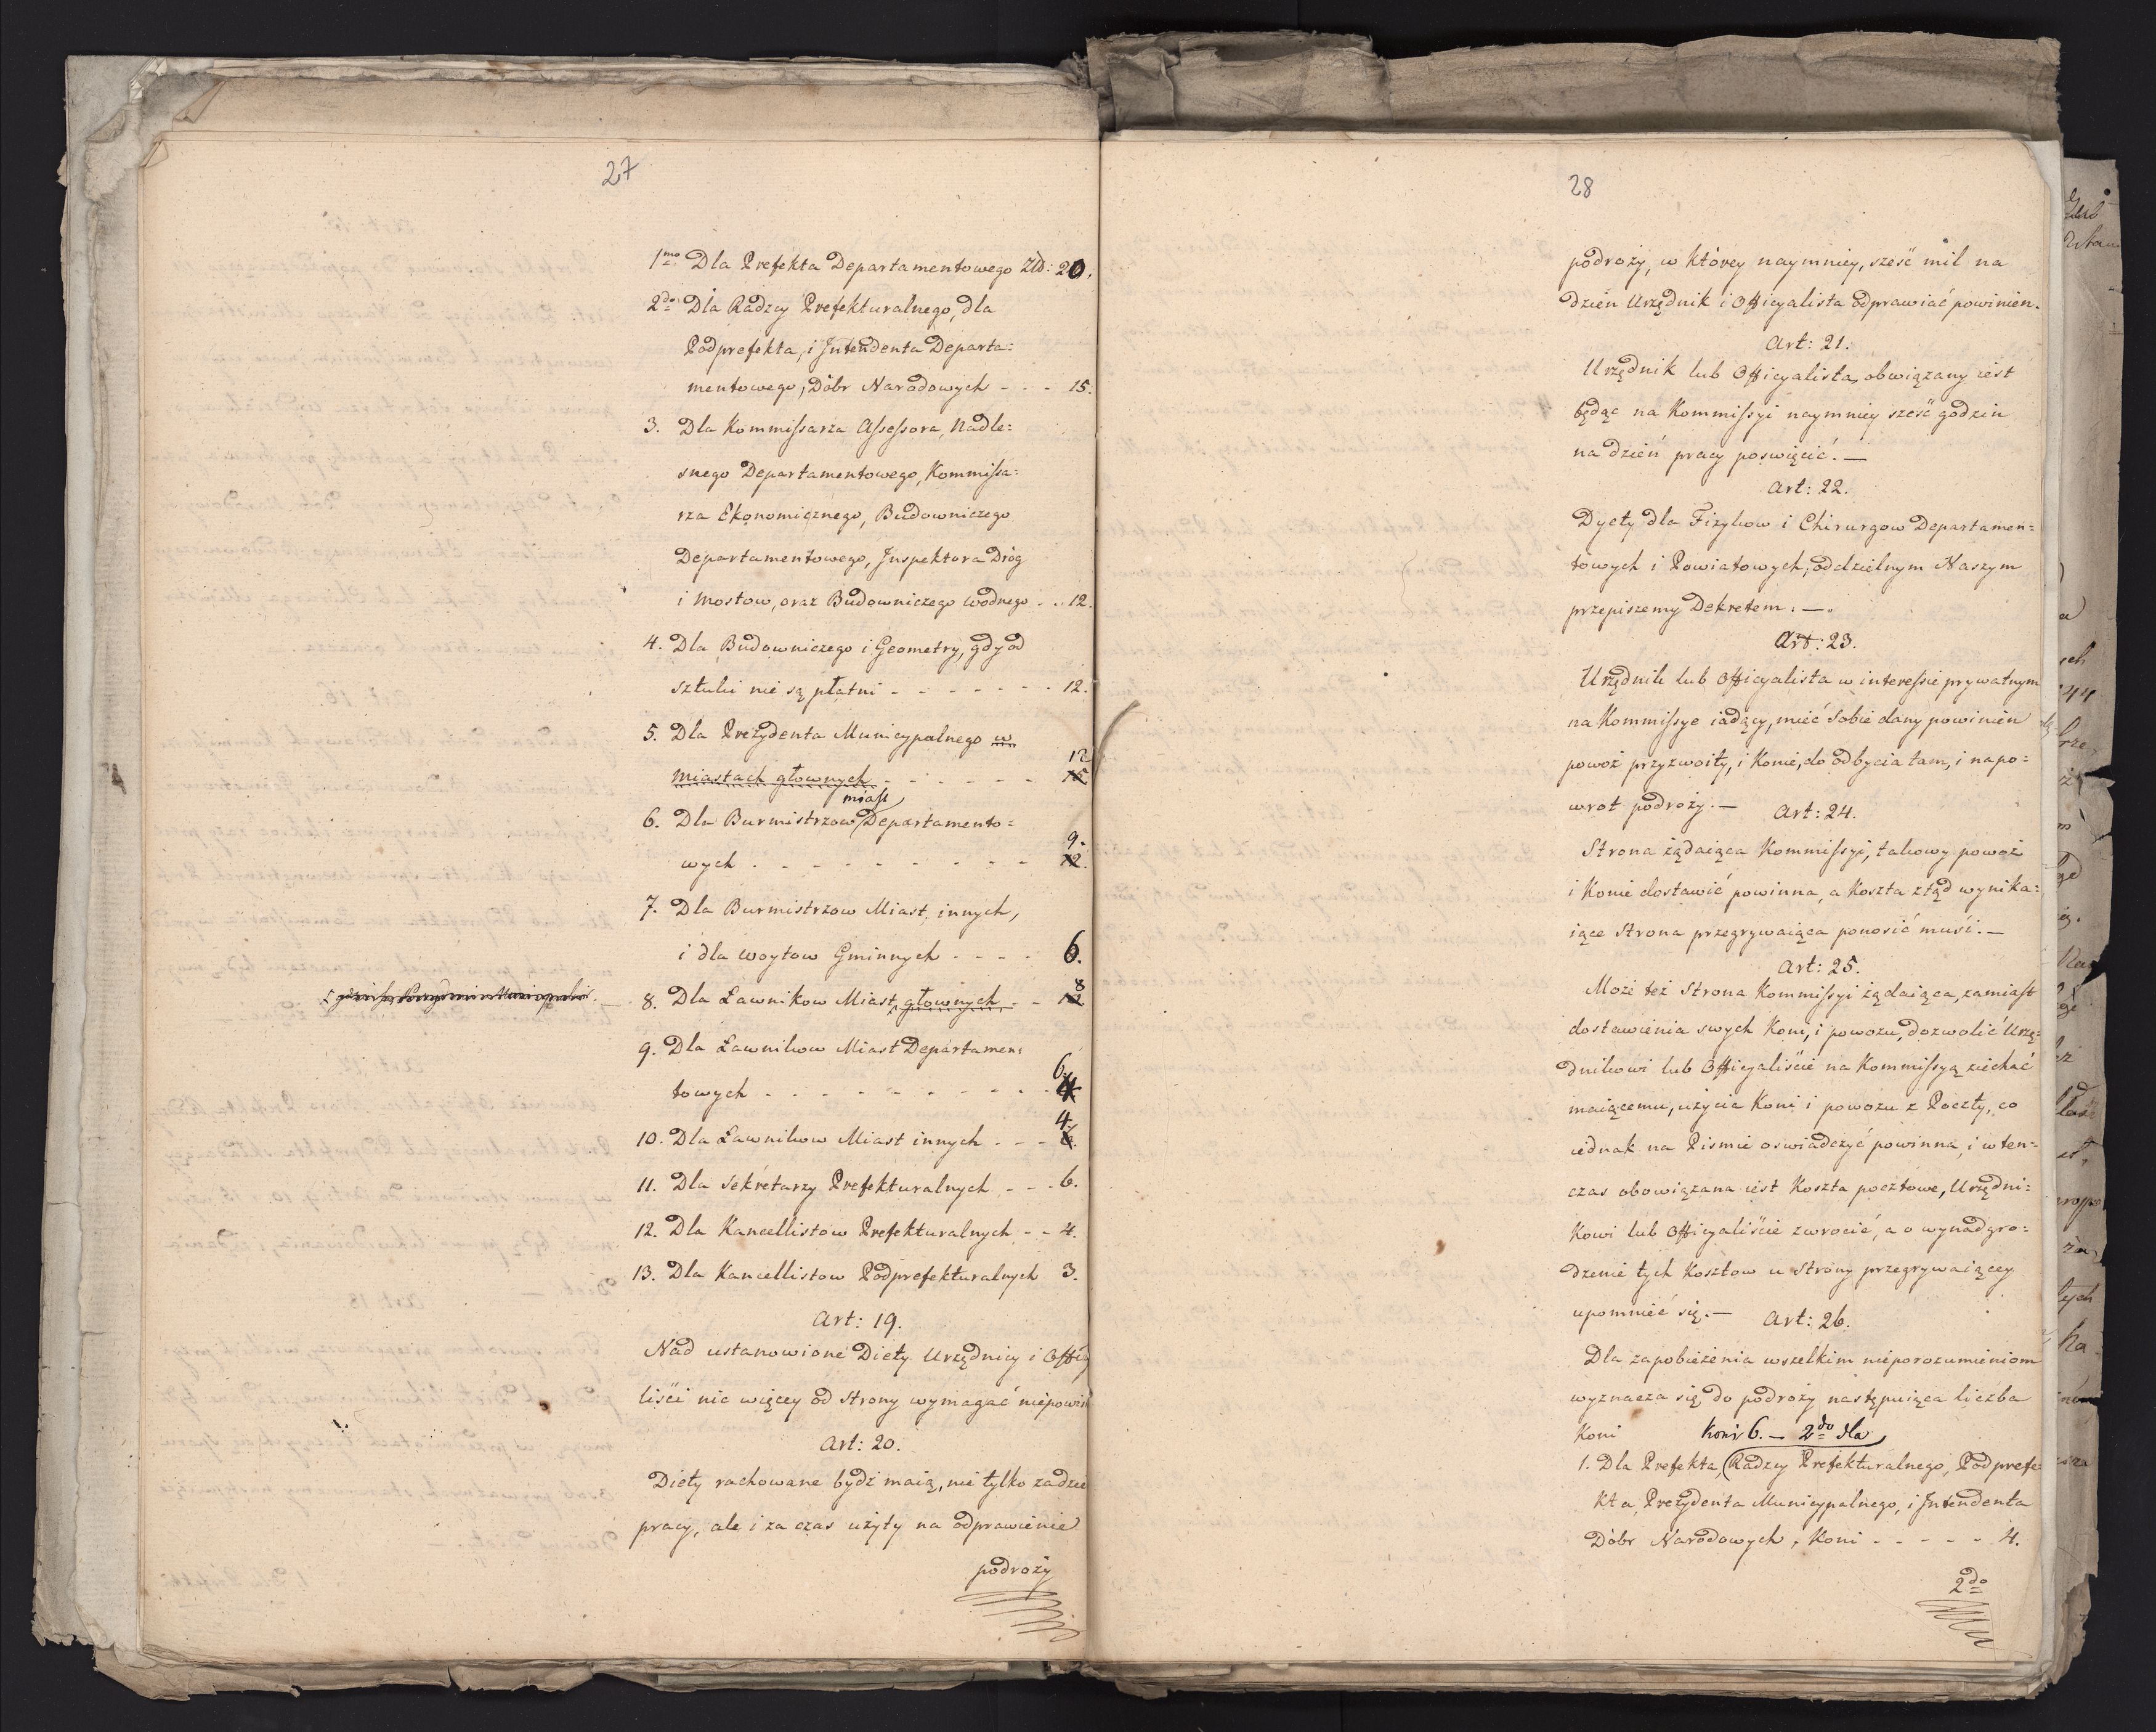 27
1mo Dla Prefekta Departamentowego Złł: 20.
2do Dla Radzcy Prefekturalnego, dla
Podprefekta, i Intendenta Departa:
mentowego, Dóbr Narodowych - - - 15.
3. Dla Kommissarza Assessora, Nadle:
snego Departamentowego, Kommissa:
rza Ekonomicznego, Budowniczego
Departamentowego, Inspektora Dróg
i Mostow, oraz Budowniczego wodnego - - 12.
4. Dla Budowniczego i Geometry, gdy od
sztuki nie są płatni - - - - - - - 12.
5. Dla Prezydenta Municypalnego w
12
miastach głownych - - - - - - 15
miast
6. Dla Burmistrzow Departamento:
9.
wych - - - - - - - - - 12.
7. Dla Burmistrzow Miast innych,
i dla Woytow Gminnych - - - - 6.
8
8. Dla Ławnikow Miast, głownych - - 12
9. Dla Ławnikow Miast Departamen:
6.
towych - - - - - - - - - -
4.
10. Dla Ławnikow Miast innych - - - 6.
11. Dla Sekretarzy Prefekturalnych - - - 6.
12. Dla Kancellistow Prefekturalnych - - 4.
13. Dla Kancellistow Podprefekturalnych 3.
Art: 19.
Nad ustanowione Diety Urzędnicy i Officy
liści nic więcey od Strony wymagać niepowin
Art: 20.
Diety rachowane bydź maią, nie tylko za dzie
pracy, ale i za czas użyty na odprawienie
podroży
28
podroży, w którey naymniey, sześć mil na
dzień Urzędnik i Officyalista odprawiać powinien.
Art: 21.
Urzędnik lub Officyalista, obwiązany iest
będąc na Kommissyi naymniey sześć godzin
na dzień pracy poswięcić. —
Art: 22.
Dyety dla Fizykow i Chirurgow Departamen=
towych i Powiatowych, oddzielnym Naszym
przepiszemy Dekretem. —
Art: 23.
Urzędnik lub Officyalista w interessie prywatnym
na Kommissye iadący, mieć sobie dany powinien
powoź przyzwoity, i Konie, do odbycia tam, i napo=
wrot podroży. —
Art: 24.
Strona żądaiąca Kommissyi, takowy powoż
i Konie dostawić powinna, a Koszta ztąd wynika:
iące Strona przegrywaiąca ponosić musi. —
Art: 25.
Może też Strona Kommissyi żądaiąca, zamiast
dostawienia swych Koni, i powozu, dozwolić Urzę:
dnikowi lub Officyaliście na Kommissyą ziechać
maiącemu, użycia Koni i powozu z Poczty, co
iednak na Pismie oswiadczyć powinna, i wten=
czas obowiązana iest Koszta pocztowe, Urzędni:
kowi lub Officyaliście zwrocić, a o wynadgro:
dzenie tych Kosztow u Strony przegrywaiącey
upomnieć się. —
Art: 26.
Dla zapobieżenia wszelkim nieporozumieniom
wyznacza się do podroży następuiąca liczba
Koni
Koni 6. — 2do dla
1. Dla Prefekta, Radzcy Prefekturalnego, Podprefe
kta, Prezydenta Municypalnego, i Intendenta
Dóbr Narodowych, Koni - - - - - 4.
2do